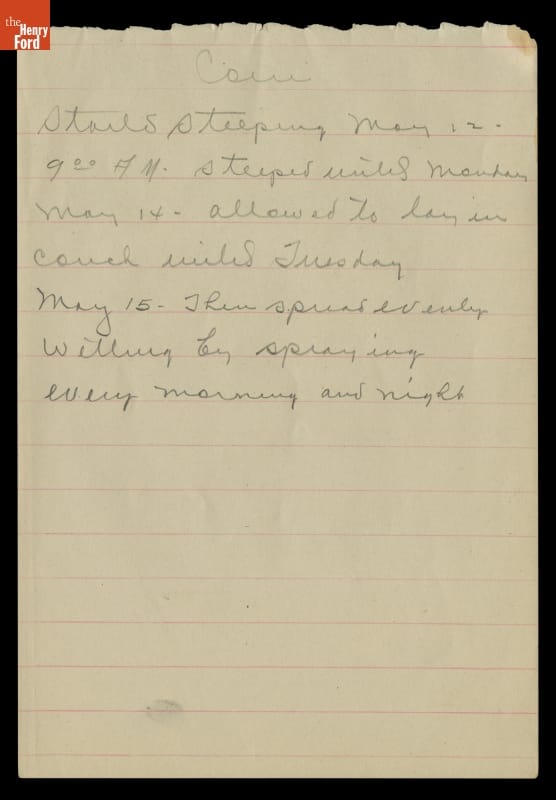 the
Henry
Ford
Corn
Started Steeping May 12-
9 00 A M. Steeped until Monday
May 14- allowed to lay in
couch until Tuesday
May 15- Then spread evenly
Wetting by spraying
every morning and night